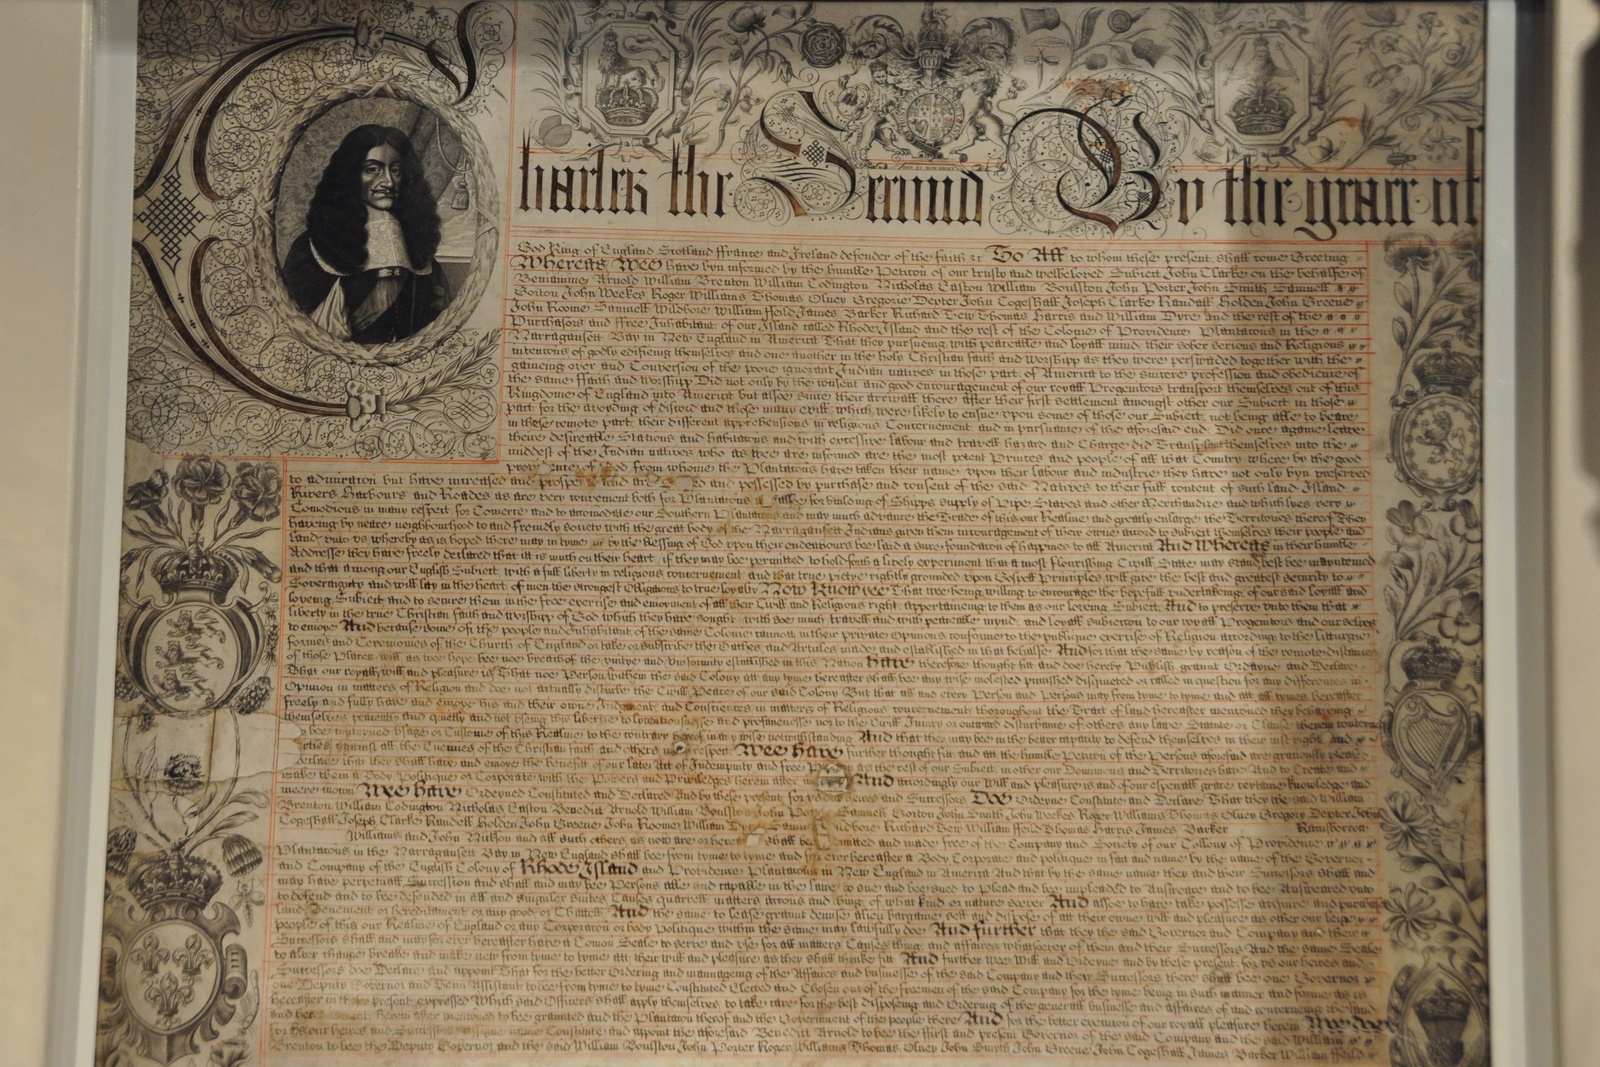 Charles the Second By the grace of
God King of England Scotland ffrance and Ireland defender of the faith &c To All to whome these present shall come Greeting
Whereas Wee have byn informed by the humble Peticon of our trusty and welbeloved Subiect John Clarke on the behalfe of
Beniamine Arnold William Brenton William Codington Nicholas Easton William Boulston John Porter John Smith Samuell
Gorton John Weekes Roger Williams Thomas Olney Gregorie Dexter John Cogeshall Joseph Clarke Randall Holden John Greene
John Roome Samuell Wildbore William ffeild James Barker Richard Tew Thomas Harris and William Dyre and the rest of the
Purchasors and ffree Inhabitant of our Island called Rhode Island and the rest of the Colonie of Providence Plantacons in the
Narragansett Bay in New England in America That they pursuing with peaceable and loyall mind their sober serious and Religious
intencons of godly edifieing themselves and one another in the holy Christian faith and Worshipp as they were perswaded together with the
gaineing over and Conversion of the poore ignorant Indian natives in those part of America to the sincere profession and obedience of
the same ffaith and Worshipp Did not only by the consent and good encouragement of our royall Progenitors transport themselves out of this
Kingdome of England into America but alsoe since their arrivall there after their first settlement amongst other our Subiect in those
part for the avoyding of discord and those many evill which were likely to ensue upon some of those our Subiect not being able to beare
in these remote part their different apprehensions in religious Concernement and in pursuance of the aforesaid end Did once againe leave
theire desireable Stacons and habitacons and with excessive labour and travell hazard and Charge did Transplant themselves into the
middest of the Indian natives who as wee are informed are the most potent Princes and people of all that Country where by the good
of God from whome the Plantacons have taken their name upon their labour and industrie they have not only byn preserved
to admiracon but have increased and and possessed by purchase and consent of the said Natives to their full content of such land Island
Rivers Harbours and Roades as are very convenient both for Plantacons for building of Shipps supply of Pipe Staves and other Merchandize and which lyes very
Comodious in many respect for Comerce and to accomodate our Southern Plantacons and may much advance the Trade of this our Realme and greatly enlarge the Territories thereof They
haveing by neare neighbourhood to and friendly society with the great body of the Narragansett Indians given them incouragement of their owne accord to subiect themselves their people and
land unto us whereby as is hoped there may in tyme by the blessing of God upon their endeavours bee laid a sure foundacon of happines to all America And Whereas in their humble
Addresse they have freely declared that it is much on their heart if they may bee permitted to hold forth a lively experiment that a most flourishing Civill State may stand best bee maintained
and that among our English Subiect with a full liberty in religious concernement and that true pietye rightly grounded upon Gospell Principles will give the best and greatest security to
Soveraignty and will lay in the heart of men the strongest Obligacons to true loyalty Now Know yee That wee being willing to encourage the hopefull undertakeing of our said loyall and
loveing Subiect and to secure them in the free exercise and enioyment of all their Civill and Religious right appertaineing to them as our loveing Subiect And to preserve unto them that
liberty in the true Christian faith and worshipp of God which they have sought with soe much travell and with peaceable mynd and loyall subieccon to our royall Progenitors and our selves
to enioye And because some of the people and Inhabitant of the same Colonie cannot in their private Opinions conforme to the publique exercise of Religion according to the liturgie
formes and Ceremonies of the Church of England or take or subscribe the Oathes and Articles made and established in that behalfe And for that the same by reason of the remote distances
of those Places will as wee hope bee noe breach of the unitye and uniformity established in this Nation Have therefore thought fit and doe hereby Publish graunt Ordayne and Declare
That our royall will and pleasure is That noe Person within the said Colony att any tyme hereafter shall bee any wise molested punished disquieted or called in question for any differences in
Opinion in matters of Religion and doe not actually disturbe the Civill Peace of our said Colony But that all and every Person and Persons may from tyme to tyme and att all tymes hereafter
freely and fully have and enioye his and their owne Iudgment and Consciences in matters of Religious concernement throughout the Tract of land hereafter mencioned they behaveing
themselves peaceably and quietly and not useing this libertie to lycentiousnesse and profanenesse nor to the Civill Iniury or outward disturbance of others any lawe Statute or Clause therein
Usage or Custome of this Realme to the contrary hereof in any wise notwithstanding And that they may bee in the better capacity to defend themselves in their iust right and
against all the Enemies of the Christian faith and others in respect Wee have further thought fit and att the humble Peticon of the Persons aforesaid are graciously pleased
Declare that they shall have and enioye the benefit of our late Act of Indempnity and free as the rest of our Subiect in other our Dominions and Territories have And to Create and
make them a Body Politique or Corporate with the Powers and Priviledges herein after And accordingly our Will and pleasure is and of our especiall grace certaine knowledge and
meere mocon Wee Have Ordeyned Constituted and Declared And by these present for us our heires and Successors Doe Ordeyne Constitute and Declare That they the said William
Brenton William Codington Nicholas Easton Benedict Arnold William Boulston John Samuell Gorton John Smith John Weekes Roger Williams Thomas Olney Gregory Dexter John
Cogeshall Joseph Clarke Randall Holden John Greene John Roome William Richard Tew William ffeild Thomas Harris James Barker Rainsborrow
Williams and John Nickson and all such others as now are or hereafter shall bee and made free of the Company and Society of our Collony of Providence
Plantacons in the Narragansett Bay in New England shall bee from tyme to tyme and for ever hereafter a Body Corporate and politique in fact and name by the name of the Governor
and Company of the English Colony of Rhode Island and Providence Plantacons in New England in America And that by the same name they and their Successors shall and
may have perpetuall Succession and shall and may bee Persons able and capable in the lawe to sue and bee sued to Plead and bee impleaded to Answeare and to bee Answeared unto
to defend and to bee defended in all and singuler suites Causes quarrell matters accons and thing of what kind or nature soever And alsoe to have take possesse acquire and purchase
land Tenement or hereditament or any good or Chattell And the same to lease graunt demise alien bargaine sell and dispose of att their owne will and pleasure as other our leige
people of this our Realme of England or any Corporacon or body Politique within the same may lawfully doe And further that they the said Governor and Company and their
Successors shall and may for ever hereafter have a Comon Seale to serve and use for all matters Causes thing and affaires whatsoever of them and their Successors And the same Seale
to alter change breake and make new from tyme to tyme att their will and pleasure as they shall thinke fit And further Wee Will and Ordeyne and by these present for us our heires and
Successors doe Declare and appoint That for the better Ordering and mannageing of the Affaires and buisinesse of the said Company and their Successors there shall bee one Governor
one Deputy Governor and Tenn Assistant to bee from tyme to tyme Constituted Elected and Chosen out of the freemen of the said Company for the tyme being in such manner and forme as is
hereafter in these present expressed Which said Officers shall apply themselves to take care for the best disposeing and Ordering of the generall buisinesse and affaires of and concerneing the land
and herein after mencioned to bee graunted and the Plantacon thereof and the Government of the people there And for the better execucon of our royall pleasure herein Wee doe
for us our heires and Successors name Constitute and appoint the aforesaid Benedict Arnold to bee the first and present Governor of the said Company and the said William
Brenton to bee the Deputy Governor and the said William Boulston John Porter Roger Williams Thomas Olney John Smith John Greene John Cogeshall James Barker William ffeild